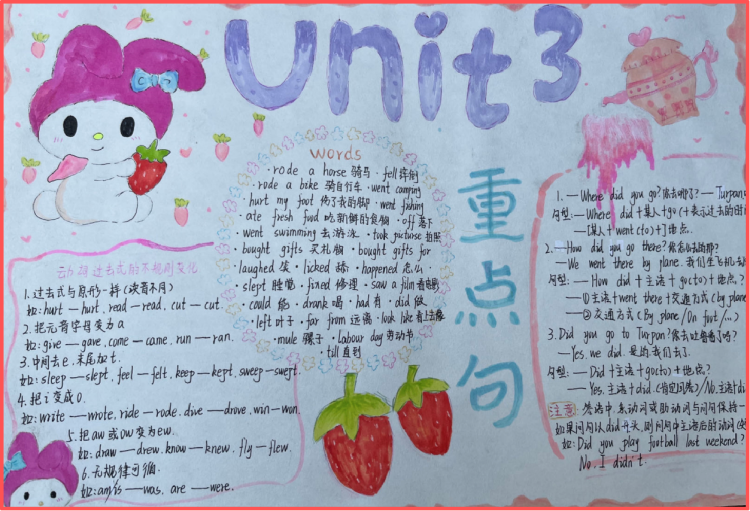 Unit 3
words
·rode a horse 骑马 ·fell 摔倒
·rode a bike 骑自行车 ·went camping
·hurt my foot 伤了我的脚 ·went fishing
·ate fresh food 吃新鲜的食物 ·off 落下
·went swimming 去游泳 ·took picturse 拍照
·bought gifts 买礼物 ·bought gifts for
·laughed 笑 ·licked 舔 ·happened 发生
·slept 睡觉 ·fixed 修理 ·saw a film 看电影
·could 能 ·drank 喝 ·had 有 ·did 做
·left 叶子 ·far from 远离 ·look like 看上去像
·mule 骡子 ·Labour day 劳动节
·till 直到
重点句
动词过去式的不规则变化
1.过去式与原形一样(读音不同)
如:hurt—hurt, read—read, cut—cut.
2.把元音字母变为a
如:give—gave, come—came, run—ran.
3.中间去e,末尾加t.
如:sleep—slept, feel—felt, keep—kept, sweep—swept.
4.把i变成o.
如:write—wrote, ride—rode, dive—drove, win—won.
5.把aw或ow变为ew.
如:draw—drew, know—knew, fly—flew.
6.无规律可循.
如:am/is—was, are—were.
1.—Where did you go?你去哪了?—Turpan
句型:—Where did+某人+go(+表示过去的时
—[某人+went(to)+]地点.
2.—How did you go there?你怎么去的那?
—We went there by plane.我们坐飞机去
句型:—How did+主语+go(to)+地点?
—①主语+went there+交通方式(by plane
—②交通方式(By plane/On foot/…)
3.Did you go to Turpan?你去吐鲁番了吗?
—Yes, we did.是的我们去了.
句型:—Did+主语+go(to)+地点?
—Yes,主语+did.(肯定回答)/No,主语+di
注意:答语中,系动词或助动词与问句保持一
如果问句以did开头,则问句中主语后的动词
如:Did you play football last weekend?
No, I didn't.